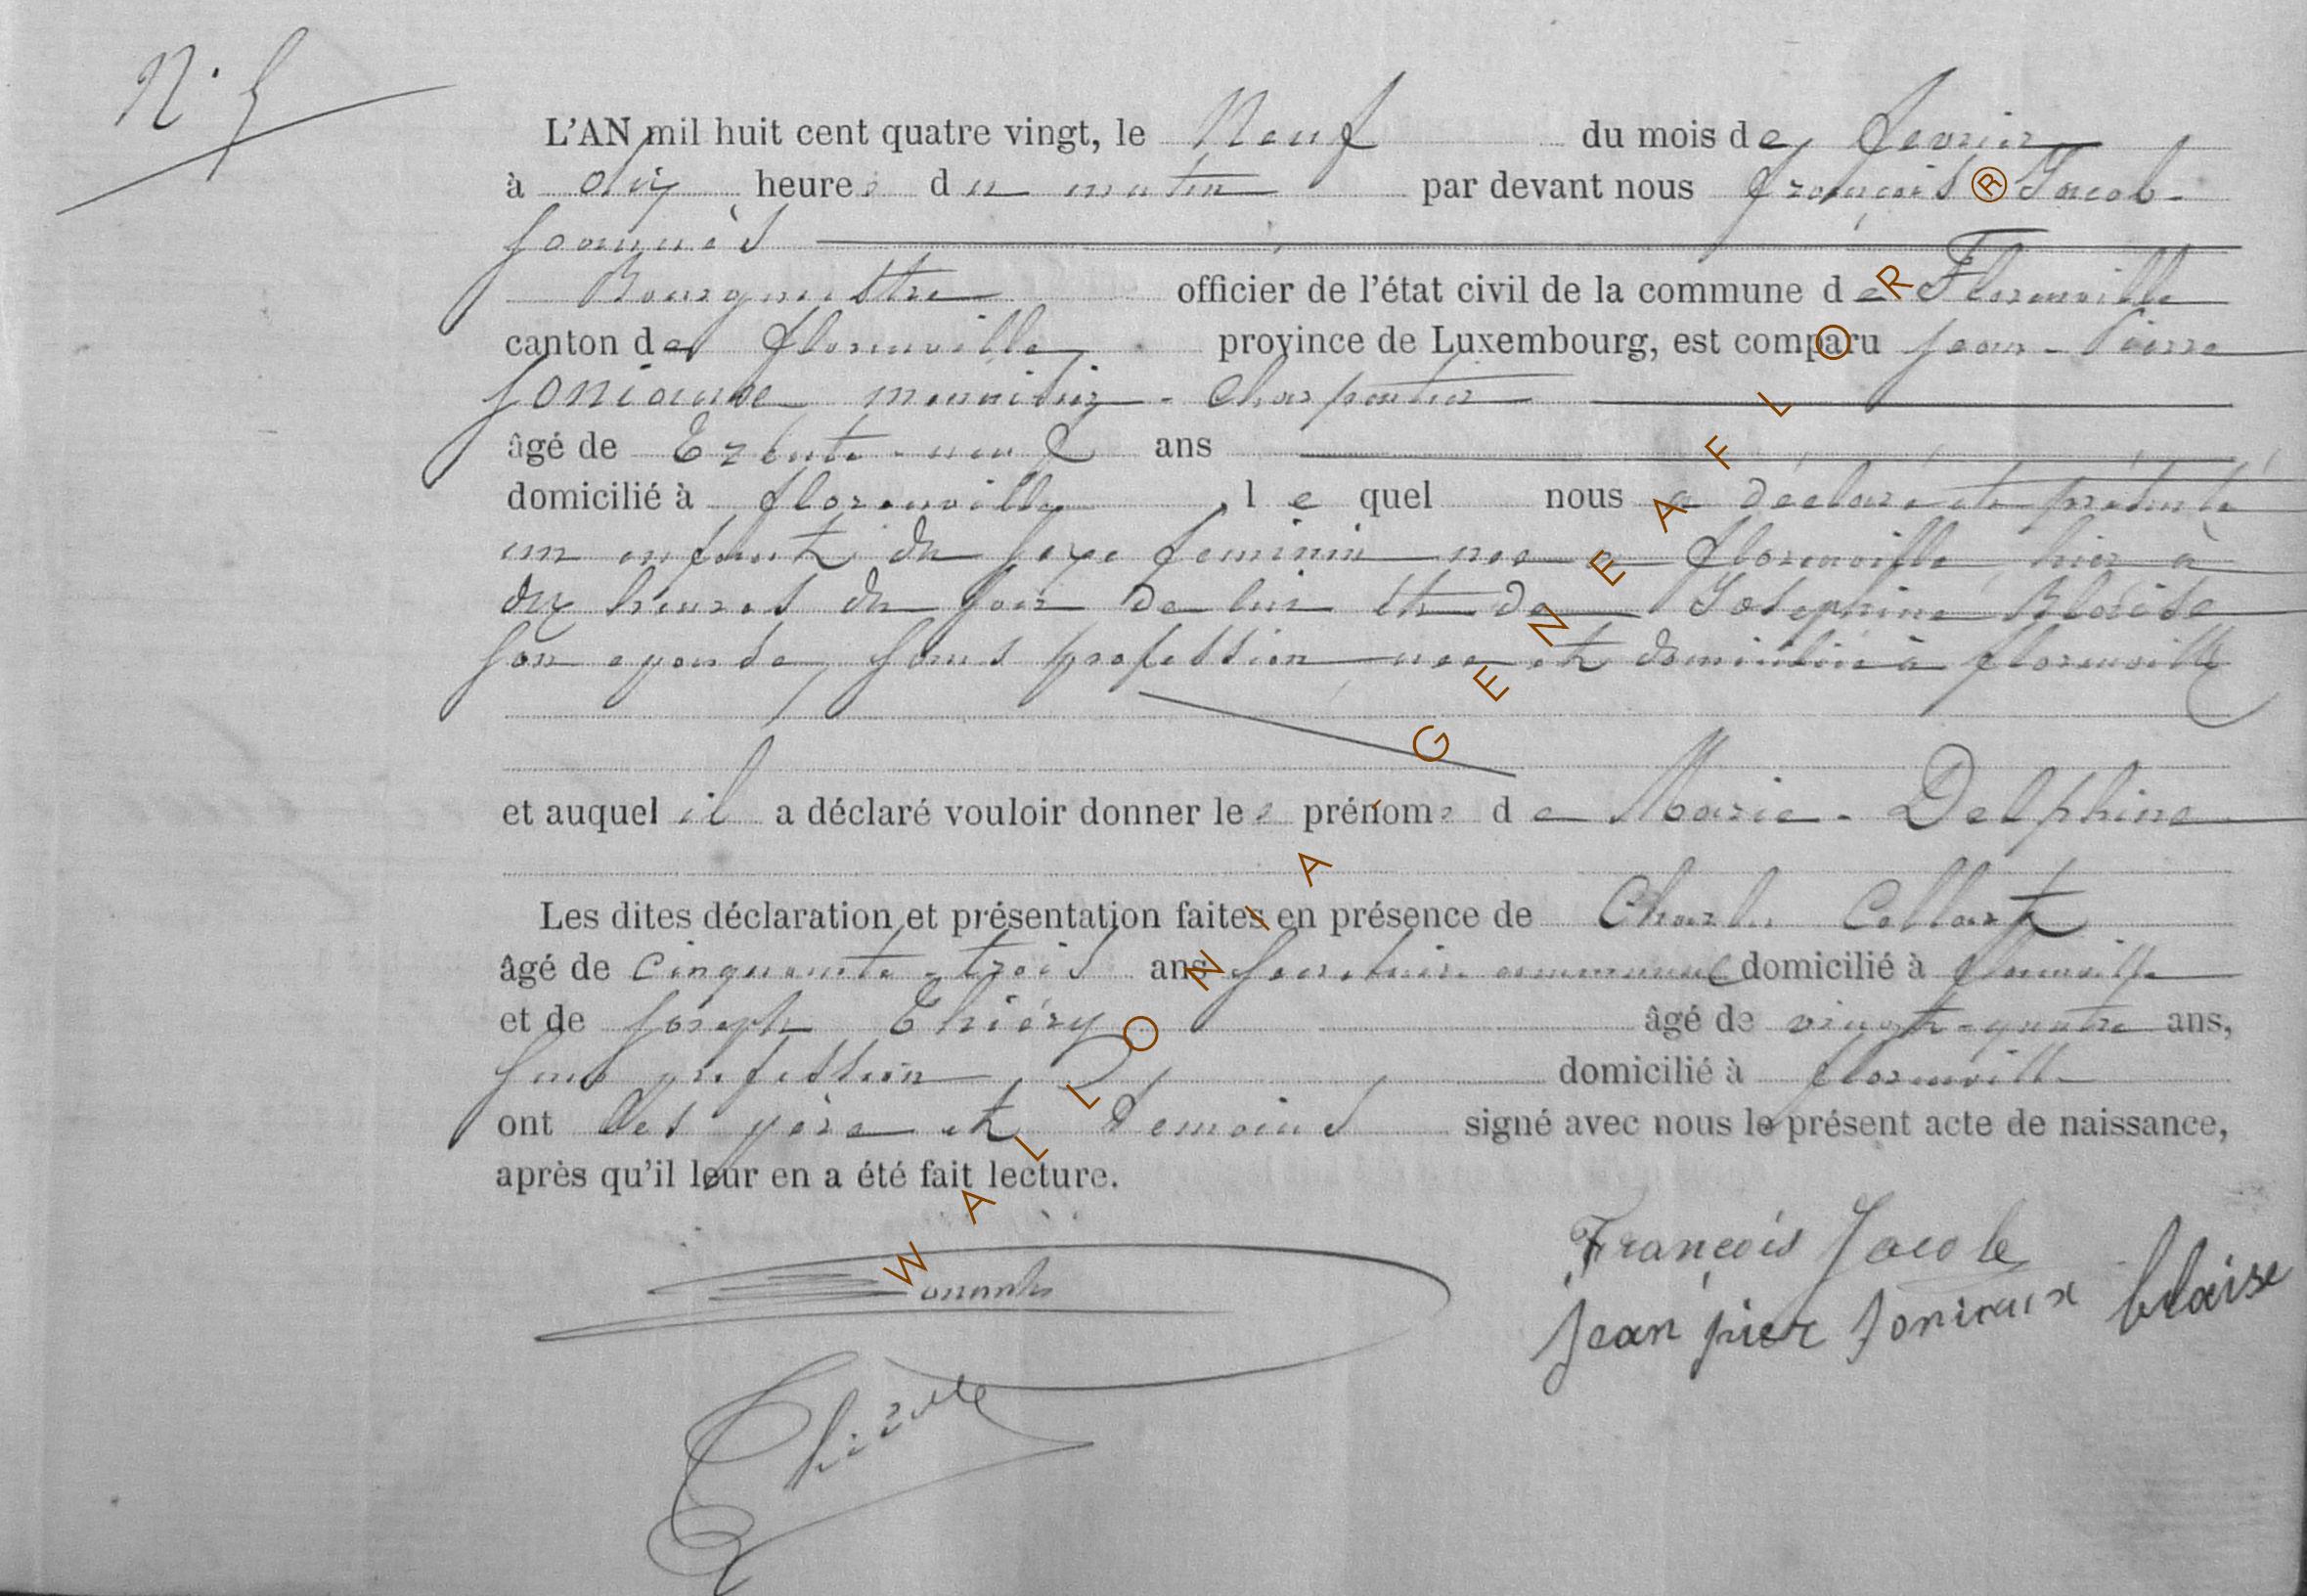 N° 5
L'AN mil huit cent quatre vingt, le Neuf du mois de fevrier
à dix heures du matin par devant nous françois Jacob
Bourgmestre officier de l'état civil de la commune de Florenville
canton de florenville province de Luxembourg, est comparu jean-Pierre
Joniaux menuisier-Charpentier
âgé de Trente-neuf ans
domicilié à florenville, lequel nous a déclaré et présenté
un enfant du sexe feminin née a florenville, hier à
dix heures du soir de lui et de Joséphine Blaise
son epouse, sans profession née et domiciliée à florenville
et auquel il a déclaré vouloir donner les prénoms de Marie-Delphine
Les dites déclaration et présentation faites en présence de Charles Collart
âgé de cinquante-trois ans secretaire communal domicilié à florenville
et de joseph Thiéry âgé de vingt-quatre ans,
sans profession domicilié à florenville
ont Les père et témoins signé avec nous le présent acte de naissance,
après qu'il leur en a été fait lecture.
François Jacob
jean pier Joniaux blaise
WALLONIA GENEAFLOR ®